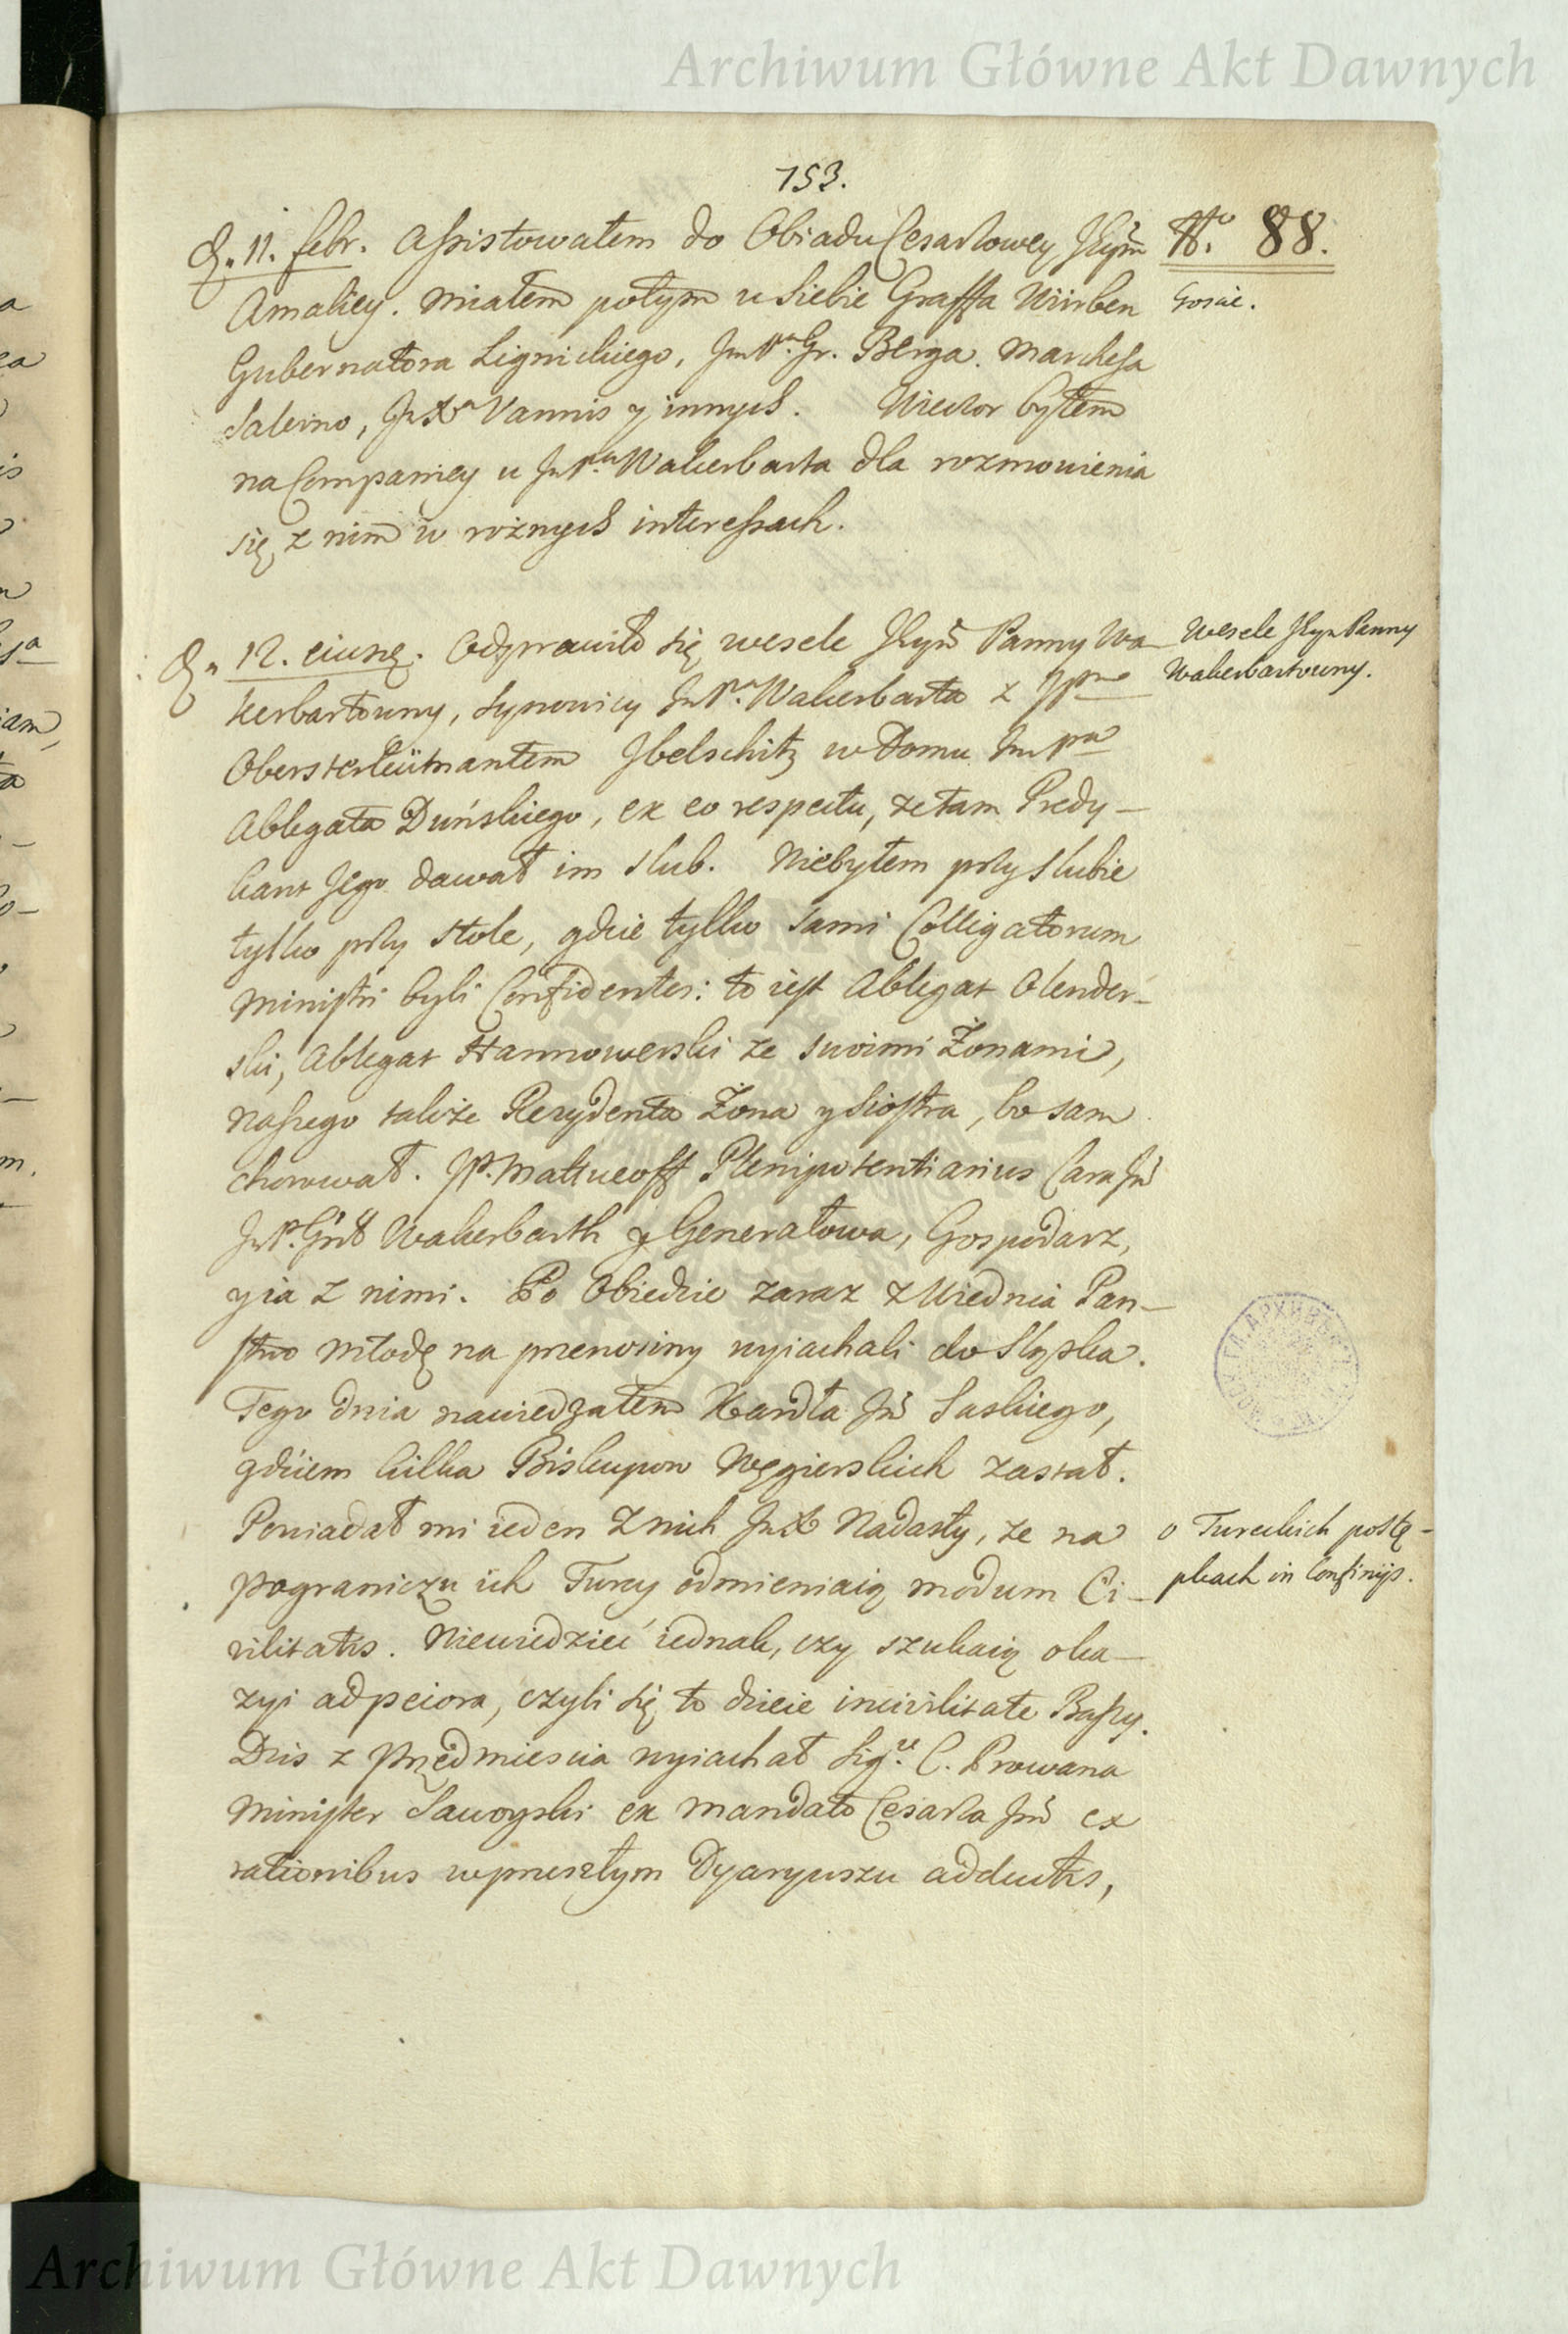 Archiwum Główne Akt Dawnych
153.
D. 11. febr. Assistowałem do Obiadu Cesarzowey JKym
Amaliey. Miałem potym u siebie Graffa Würben
Gubernatora Lignickiego, JmPa Gr. Berga. Marchesa
Salerno, JmXa Vannis y innych. Wieczor byłem
na Companiey u JmPa Wakerbarta dla rozmowienia
się z nim w rożnych interessach.
No. 88.
Goscie.
D. 12. eiusq. Odprawiło się wesele JKym Panny Wa-
kerbartowny, Synowicy JmPa Wakerbarta z JPnem
Obersterleütnantem Jbelschitz w Domu JmPa
Ablegata Duńskiego, ex eo respectu, że tam Predy-
kant Jego dawał im slub. Niebyłem przy slubie
tylko przy stole, gdzie tylko sami Colligatorum
Ministri byli Confidentes: to iest Ablegat Olender-
ski, Ablegat Hannowerski ze swoimi Żonami,
naszego także Rezydenta Żona y siostra, bo sam
chorował. JP. Mattueoff Plenipotentiarius Cara Jm
JmP. Gnł Wakerbarth y Generałowa, Gospodarz,
y ia z nimi. Po Obiedzie zaraz z Wiednia Pan-
stwo młodę na przenosiny wyiachali do Sląska.
Tego dnia nawiedzałem Kardła Jm Saskiego,
gdziem kilka Biskupow Węgierskich zastał.
Powiadał mi ieden z nich JmX Nadasty, że na
pograniczu ich Turcy odmieniaią modum Ci-
vilitatis. Niewiedzieć iednak, czy szukaią oka-
zyi ad peiora, czyli się to dzieie incivilitate Baszy.
Dzis z Przedmiescia wyiachał Sigre C. Prowana
Minister Sawoyski ex mandato Cesarza Jm ex
rationibus w przeszłym Dyaryuszu adductis,
Wesele JKym Panny
Wakerbartowny.
o Tureckich postę-
pkach in Confinijs.
Archiwum Główne Akt Dawnych